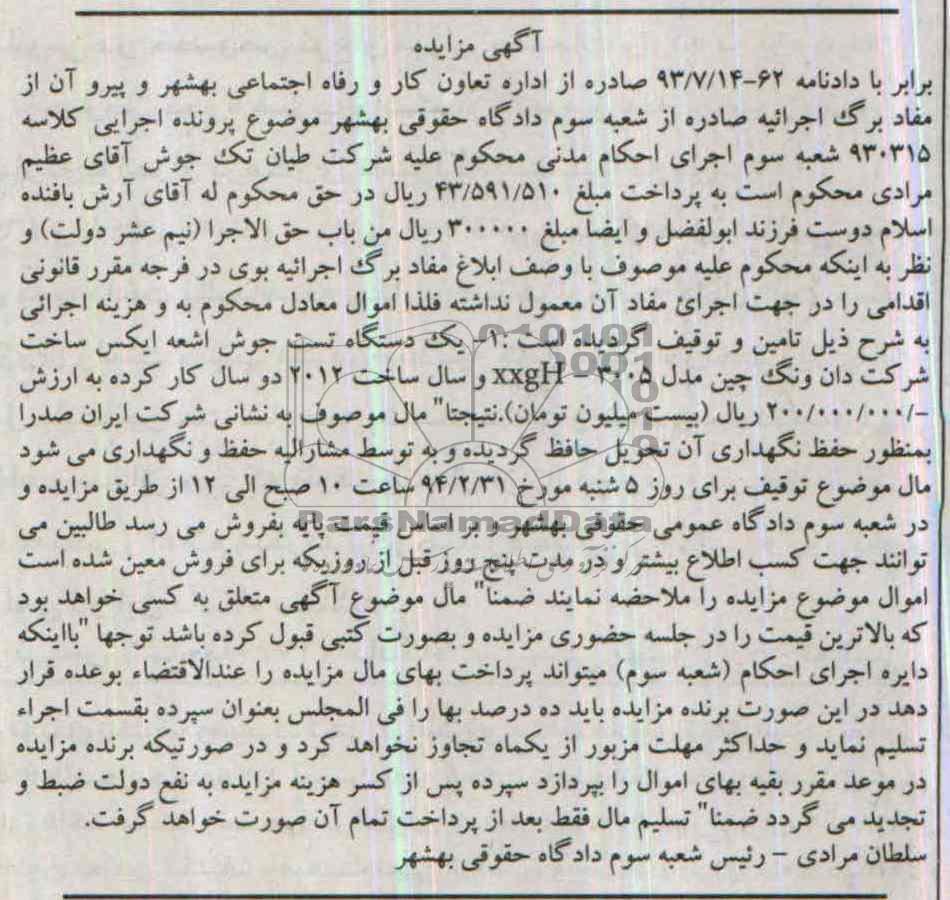 آگهی مزایده
برابر با دادنامه ۶۲-۹۳/۷/۱۴ صادره از اداره تعاون کار و رفاه اجتماعی بهشهر و پیرو آن از
مفاد برگ اجرائیه صادره از شعبه سوم دادگاه حقوقی بهشهر موضوع پرونده اجرایی کلاسه
۹۳۰۳۱۵ شعبه سوم اجرای احکام مدنی محکوم علیه شرکت طیان تک جوش آقای عظیم
مرادی محکوم است به پرداخت مبلغ ۴۳/۵۹۱/۵۱۰ ریال در حق محکوم له آقای آرش بافنده
اسلام دوست فرزند ابولفضل و ایضا مبلغ ۳۰۰۰۰۰ ریال من باب حق الاجرا (نیم عشر دولت) و
نظر به اینکه محکوم علیه موصوف با وصف ابلاغ مفاد برگ اجرائیه بوی در فرجه مقرر قانونی
اقدامی را در جهت اجرائ مفاد آن معمول نداشته فلذا اموال معادل محکوم به و هزینه اجرائی
به شرح ذیل تامین و توقیف گردیده است :۱- یک دستگاه تست جوش اشعه ایکس ساخت
شرکت دان ونگ چین مدل xxgH – ۳۰۰۵ و سال ساخت ۲۰۱۲ دو سال کار کرده به ارزش
۲۰۰/۰۰۰/۰۰۰/- ریال (بیست میلیون تومان).نتیجتا" مال موصوف به نشانی شرکت ایران صدرا
بمنظور حفظ نگهداری آن تحویل حافظ گردیده و به توسط مشارالیه حفظ و نگهداری می شود
مال موضوع توقیف برای روز ۵ شنبه مورخ ۹۴/۲/۳۱ ساعت ۱۰ صبح الی ۱۲ از طریق مزایده و
در شعبه سوم دادگاه عمومی حقوقی بهشهر و بر اساس قیمت پایه بفروش می رسد طالبین می
توانند جهت کسب اطلاع بیشتر و در مدت پنج روز قبل از روزیکه برای فروش معین شده است
اموال موضوع مزایده را ملاحضه نمایند ضمنا" مال موضوع آگهی متعلق به کسی خواهد بود
که بالاترین قیمت را در جلسه حضوری مزایده و بصورت کتبی قبول کرده باشد توجها "بااینکه
دایره اجرای احکام (شعبه سوم) میتواند پرداخت بهای مال مزایده را عندالاقتضاء بوعده قرار
دهد در این صورت برنده مزایده باید ده درصد بها را فی المجلس بعنوان سپرده بقسمت اجراء
تسلیم نماید و حداکثر مهلت مزبور از یکماه تجاوز نخواهد کرد و در صورتیکه برنده مزایده
در موعد مقرر بقیه بهای اموال را بپردازد سپرده پس از کسر هزینه مزایده به نفع دولت ضبط و
تجدید می گردد ضمنا" تسلیم مال فقط بعد از پرداخت تمام آن صورت خواهد گرفت.
سلطان مرادی – رئیس شعبه سوم دادگاه حقوقی بهشهر
ParsNamadData